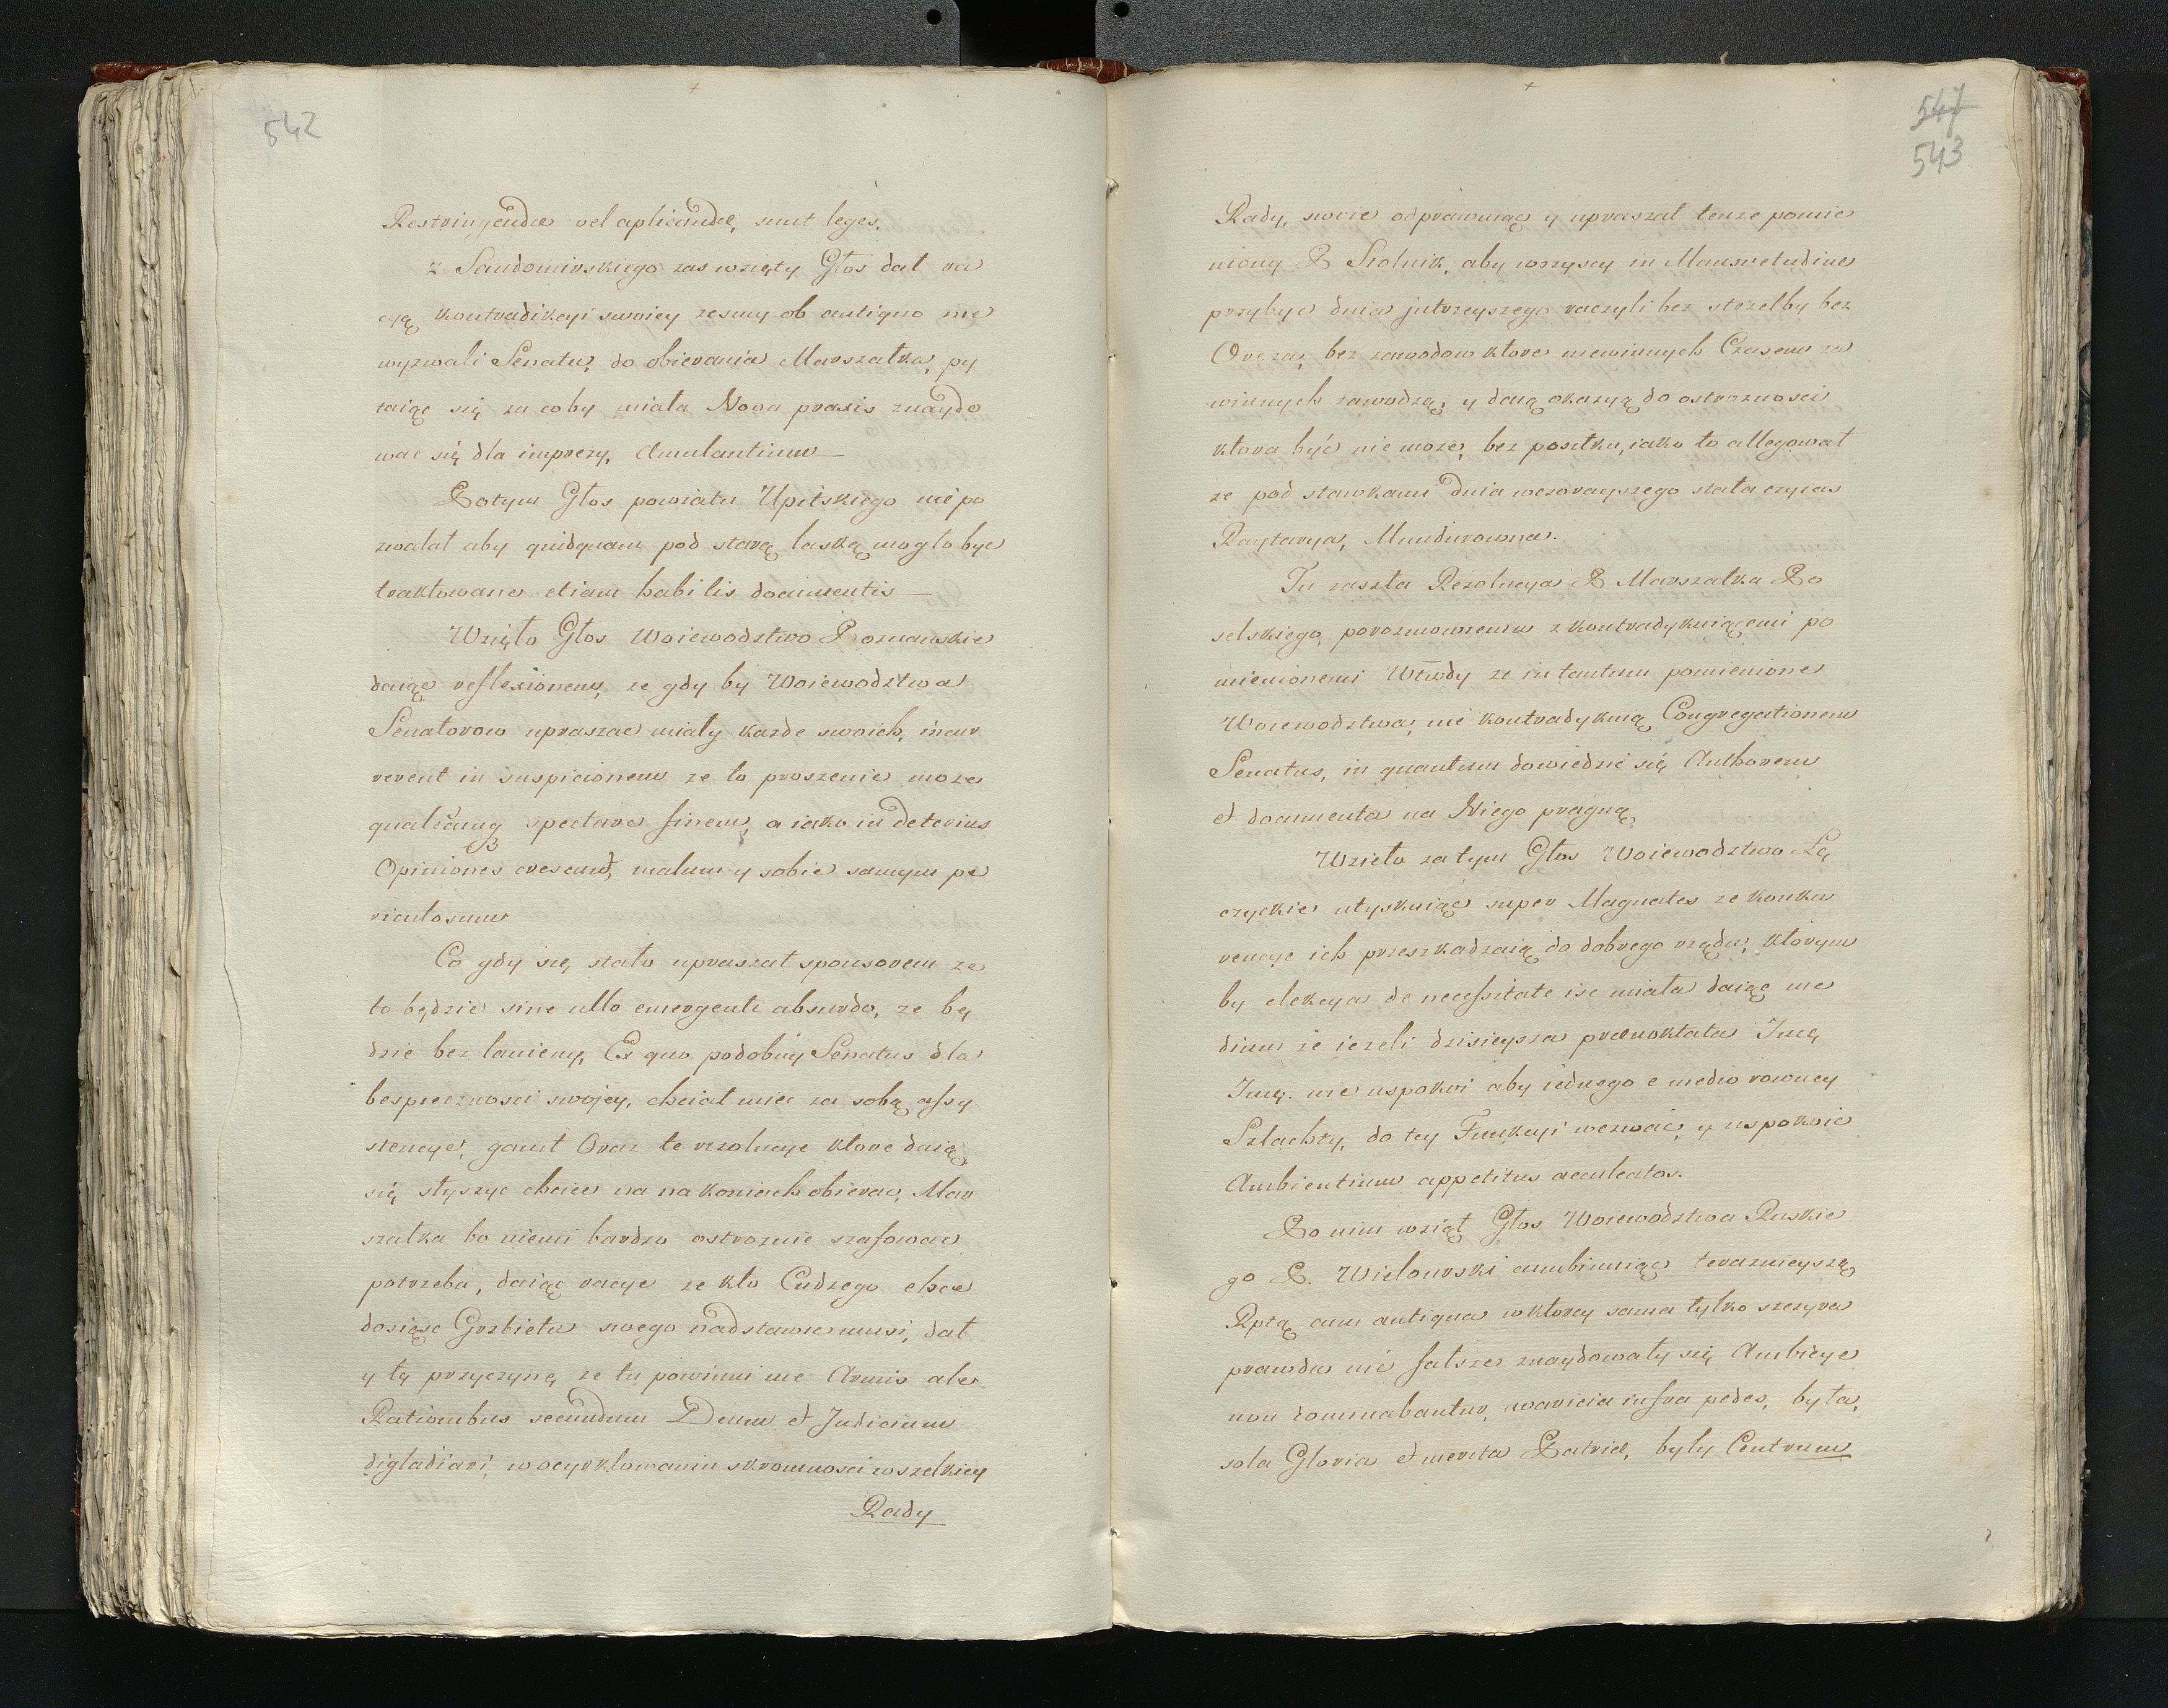 542
Restringendæ vel aplicandæ, sunt leges.
z Sandomirskiego zas wzięty Głos dał ra
cyą kontradikcyi swoiey zesmy ob antiquo nie
wyzwali Senatu, do obierania Marszałka, py
taiąc się za coby miała Nowa praxis znaydo
wac się dla imprezy, Æmulantium —
Potym Głos powiatu Upitskiego nie po
zwalał aby quidquam pod starą laską mogło byc
traktowane etiam habilis documentis —
Wzięło Głos Woiewodztwo Poznanskie
daiąc reflexionem, ze gdy by Woiewodztwa
Senatorow upraszac miały kazde swoich, incur
rerent in suspicionem ze to proszenie moze
qualēcunq spectare finem, a iako in deterius
Opiniones crescunt, malum y sobie samym pe
riculosum
Co gdy się stało upraszał sponsorem ze
to będzie sine ullo emergenti absurdo, ze bę
dzie bez lanieny, Ex quo podobny Senatus dla
bespiecznosci swojey, chciał miec za sobą assy
stencye, ganił Oraz te rezolucye ktore daią
się słyszyc chciec na na koniech obierac, Mar
szałka bo niemi bardzo ostroznie szafowac
potrzeba, daiąc racye ze kto Cudzego chce
dosiąsc Grzbietu swego nadstawic musi, dał
y tę przyczynę ze tu powinni nie Armis ale
Rationibus secundum Deum et Judicium
digladiari, w ocyrklowaniu skromnosci wszelkiey
Rady
547
543
Rady, swoie odprawuiąc y upraszał tenze pomie
niony P Stolnik, aby wszyscy in Mansuetudine
przybyc dnia jutrzeyszego raczyli bez strzelby bez
Oręza, bez zawodow ktore niewinnych Czasem za
winnych zawodzą, y daią okazyą do ostroznosci
ktora być nie moze, bez posiłku, iako to allegował
ze pod stawkami dnia wczorayszego stała czyias
Raytarya, Mundurowna.
Tu zaszła Rezolucya P Marszałka Po
selskiego, porozmowieniu z kontradykuiącemi po
mienionemi Wtwdy ze in tantum pomienione
Woiewodztwa, nie kontradykuią Congregationem
Senatus, in quantum dowiedzić się Authorem
et documenta na Niego pragną
Wzieło zatym Głos Woiewodztwo Łę
czyckie utyskuiąc super Magnates ze konku
rencye ich przeszkadzaią do dobrego rządu, ktorym
by elekcya de necessitate isc miała daiąc me
dium ze iezeli dzisieysza prænoktata Imę
Imę. nie uspokoi aby iednego e medio rowney
Szlachty, do tey Funkcyi wezwac, y uspokoic
Ambientium appetitus aculeatos.
Po nim wziął Głos Woiewodztwa Ruskie
go P. Wielowski cumbinuiąc terazneyszą
Rptą cum antiqua w ktorey sama tylko szczyra
prawda nie fałsze znaydowały się Ambicye
non dominabantur, avaricia infra pedes, była,
sola Gloria et merita Patriæ, były Centrum